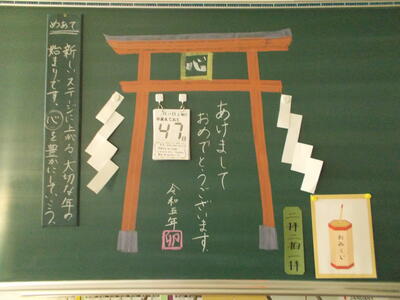 めあて
新しいステージに上がる、大切な年の
始まりです。心を豊かにしていこう。
心
47
日
あけまして
おめでとうございます。
令和五年
卯
二拝二拍一拝
おみくじ